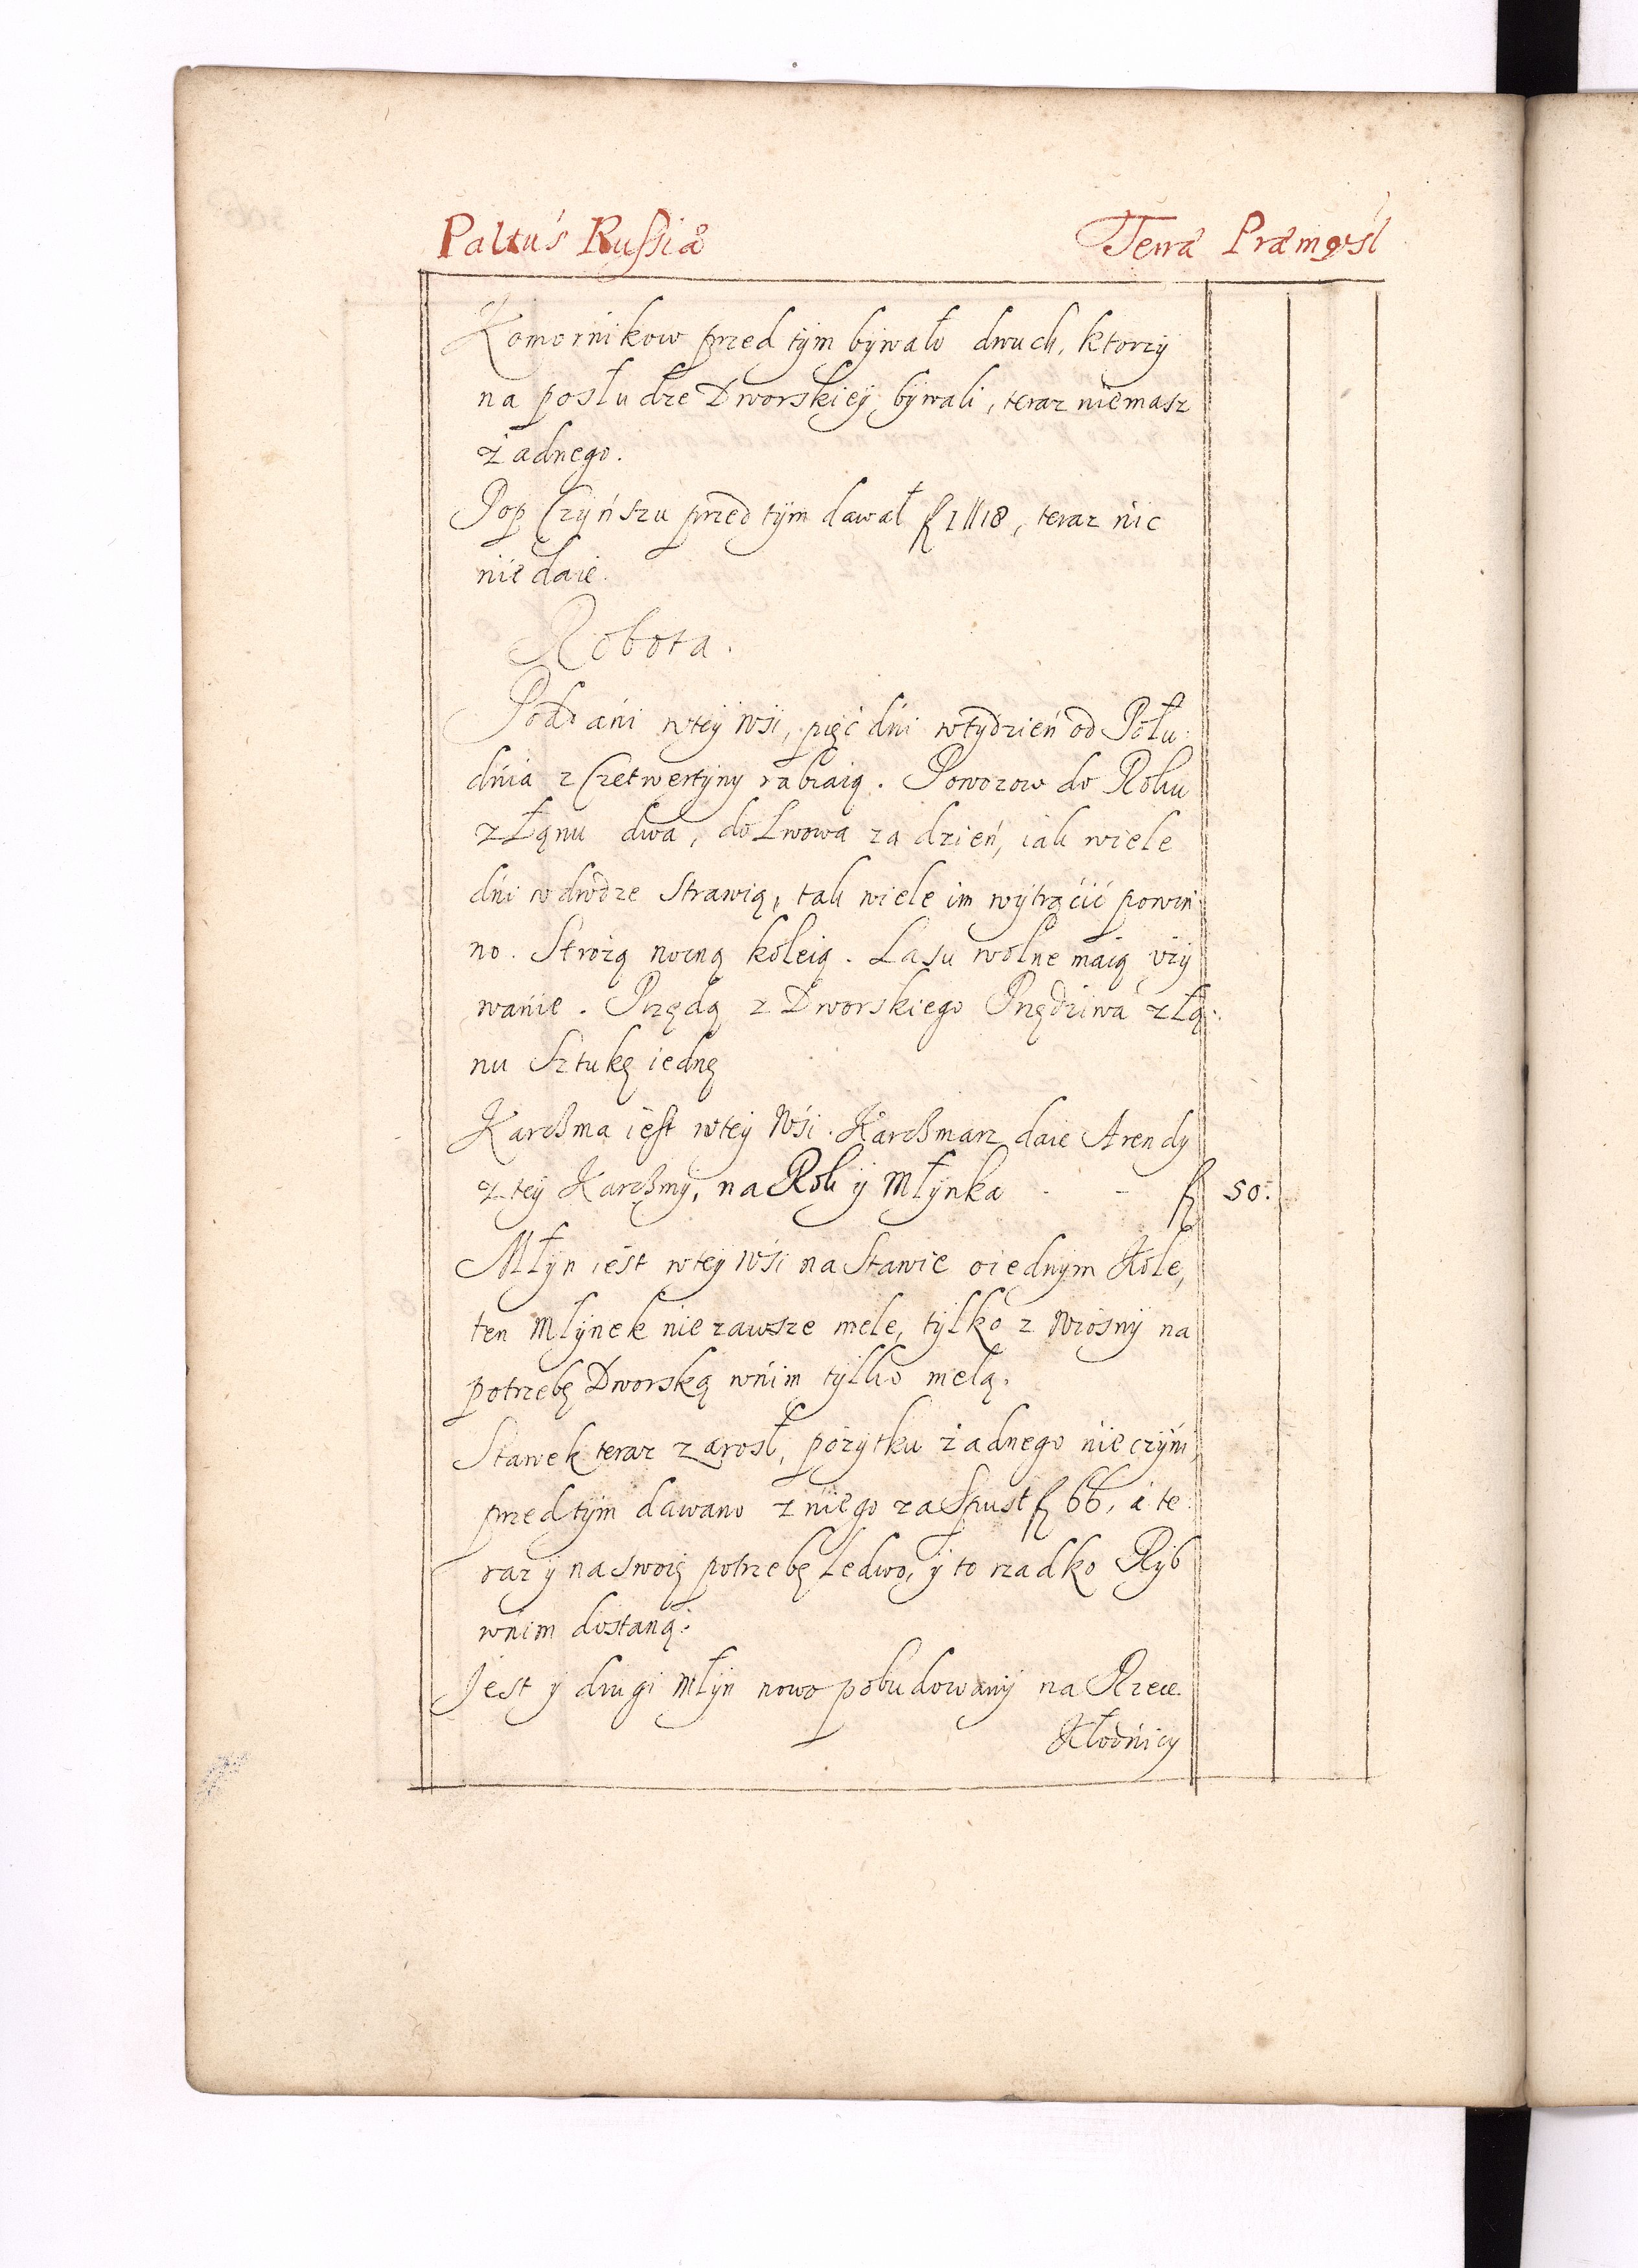 Paltus Russiæ Terræ Præmysl
Komornikow przed tym bywało dwuch, ktorzy
na posłudze Dworskiey bywali, teraz niemasz
żadnego.
Pop Czynszu przed tym dawał fl 1||18, teraz nic
nie daie.
Robota.
Poddani wtey Wsi, pięć dni wtydzień od Połu
dnia z Czetwertyny rabiaią. Powozow do Roku
z Łanu dwa, do Lwowa za dzień, iak wiele
dni w drodze strawią, tak wiele im wytrącić powin
no. Strożą nocną koleią. Lasu wolne maią uży
wanie. Przędą z Dworskiego Przędziwa z Łą
nu Sztukę iednę
Karcżma iest wtey Wsi. Karcżmarz daie Arendy
z tey Karcżmy, na Rok y Młynka - - fl 50.
Młyn iest wtey Wsi na Stawie o iednym Kole,
ten Młynek nie zawsze mele, tylko z Wiosny na
potrzebę Dworską wnim tylko melą.
Stawek teraz zarosł, pożytku żadnego nieczyni,
przedtym dawano z niego za Spust fl 66, a te
raz y na swoię potrzebę ledwo, y to rzadko Ryb
wnim dostaną.
Jest y drugi Młyn nowo pobudowany na Rzece
Kłodnicy